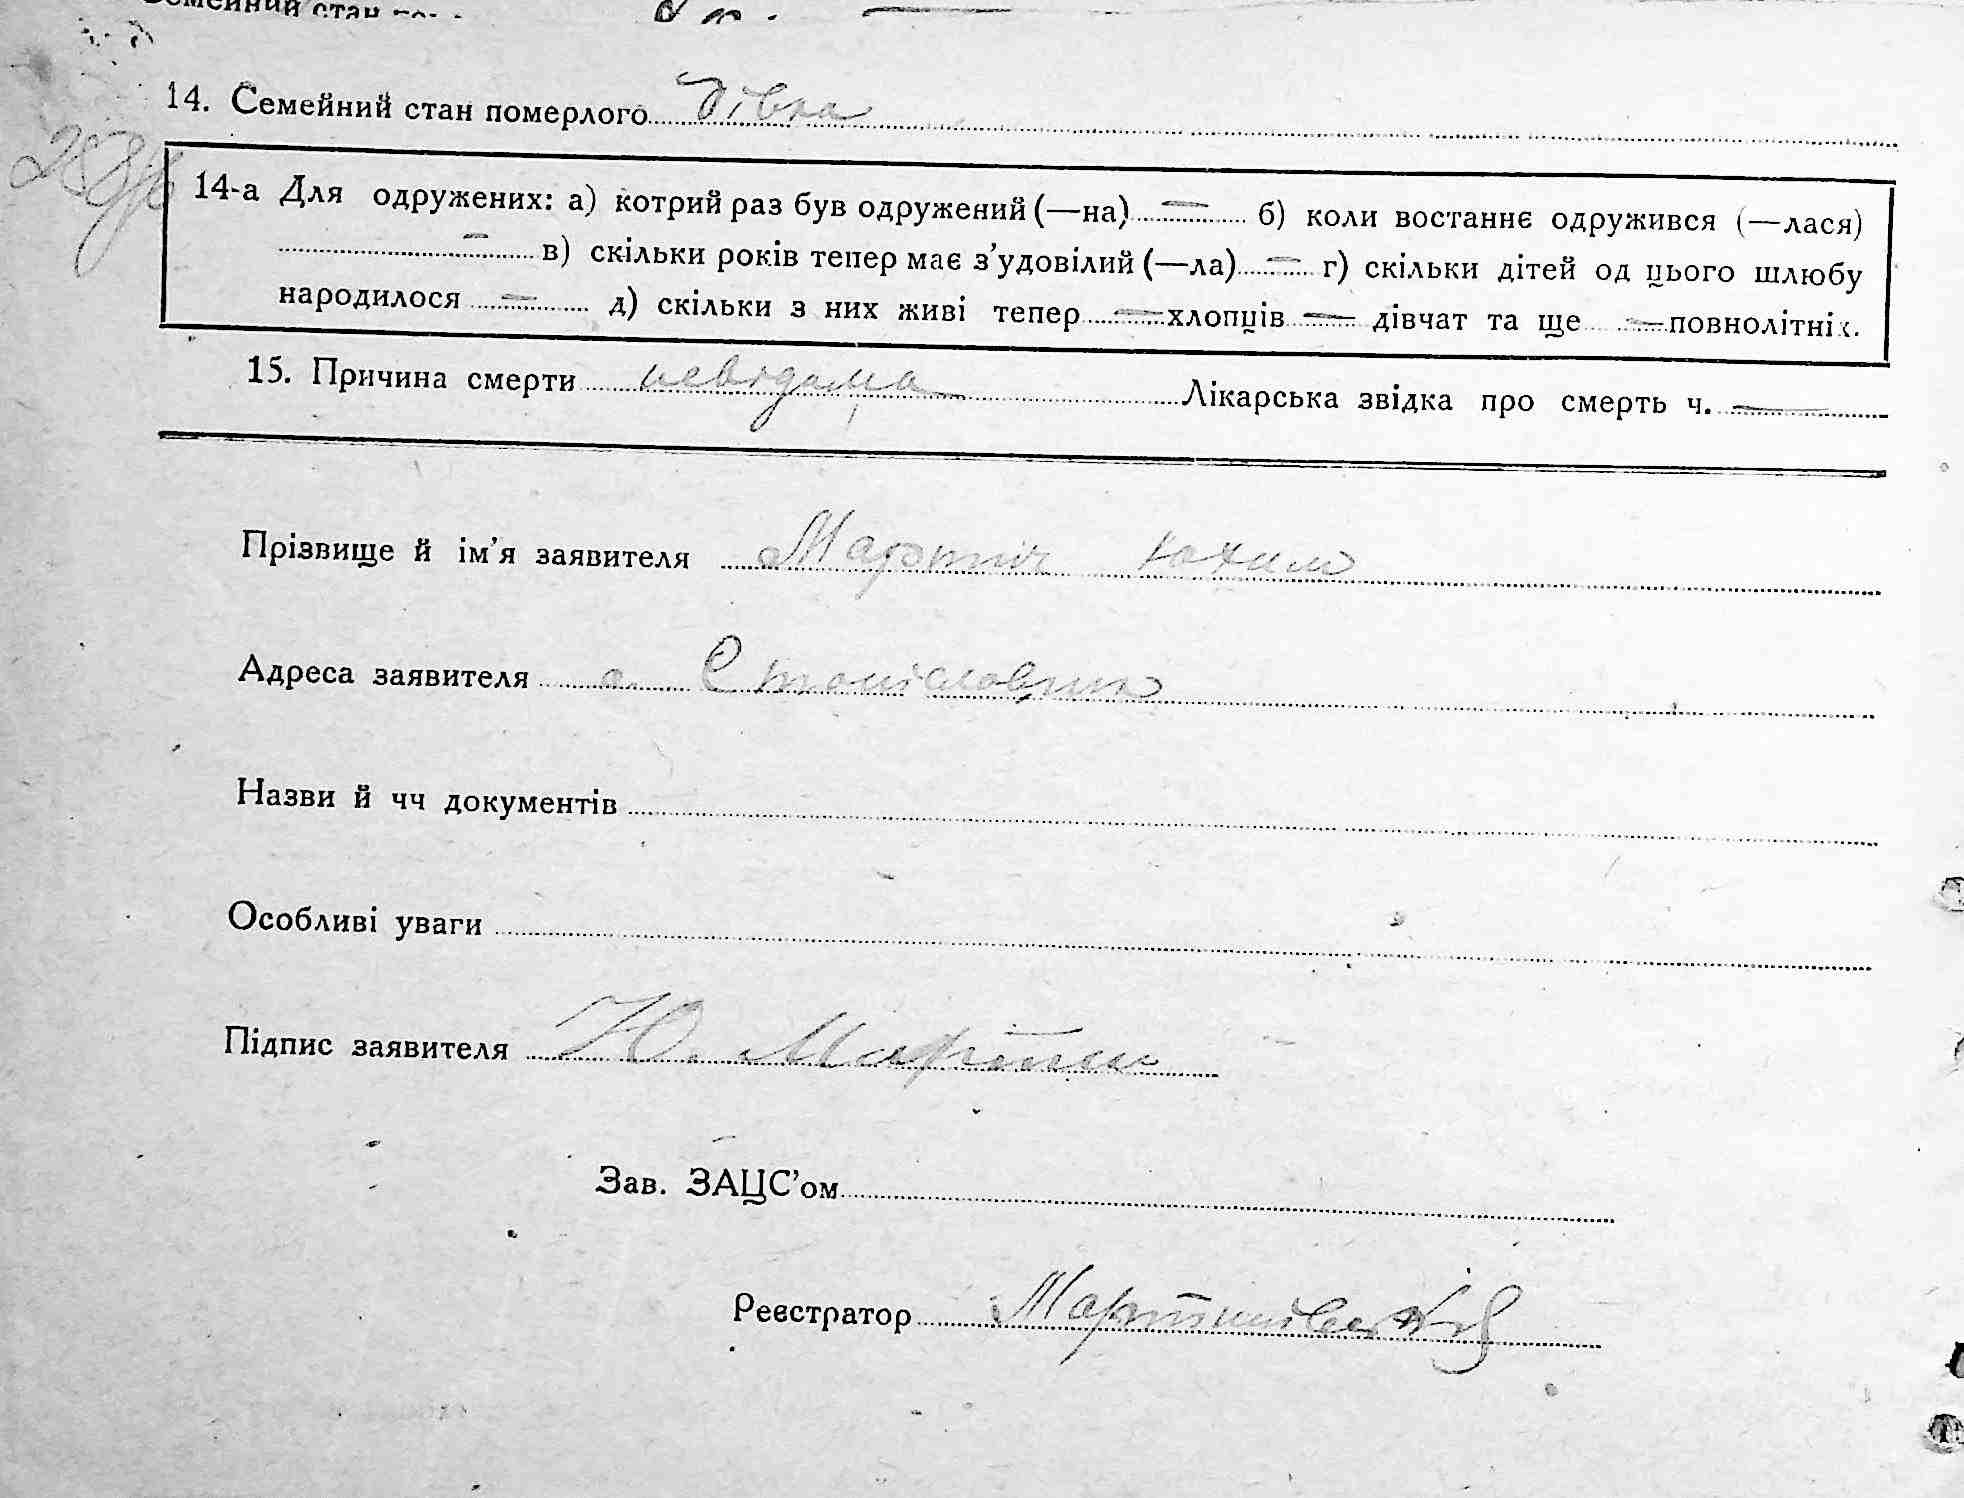 14. Семейний стан померлого дівка
14-а Для одружених: а) котрий раз був одружений (—на) — б) коли востаннє одружився (—лася)
— в) скільки років тепер має з’удовілий (—ла) — г) скільки дітей од цього шлюбу
народилося — д) скільки з них живі тепер — хлопців — дівчат та ще — повнолітніх.
15. Причина смерти невідома Лікарська звідка про смерть ч. —
Прізвище й ім’я заявителя Мартич Юхим
Адреса заявителя с.
Назви й чч документів
Особливі уваги
Підпис заявителя Ю.
Зав. ЗАЦС’ом
Реєстратор